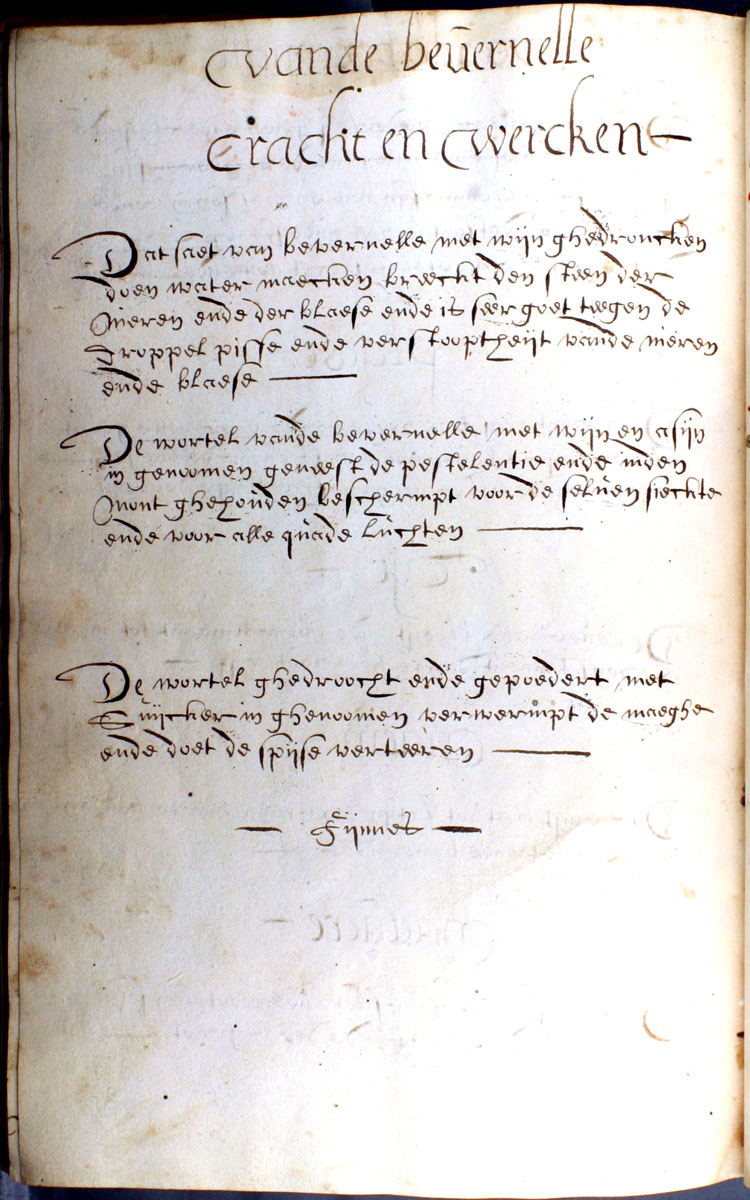 vande beūernelle
Cracht en Wercken
Dat saet van bevernelle met wijn ghedroncken
doen water maecken breeckt den steen der
Nieren ende der blaese ende is seer goet teegen de
droppel pisse ende verstooptheijt vande nieren
ende blaese
De wortel vande bevernelle met wijn en asijn
in genoomen geneest de pestelentie ende inden
Mont ghehoūden beschermpt voor de selven sieckte
ende voor alle qūade lūchten
De wortel ghedroocht ende gepoedert met
Sūijcker in ghenoomen verwermpt de maeghe
ende doet de spijse verteeren
Fijnnes